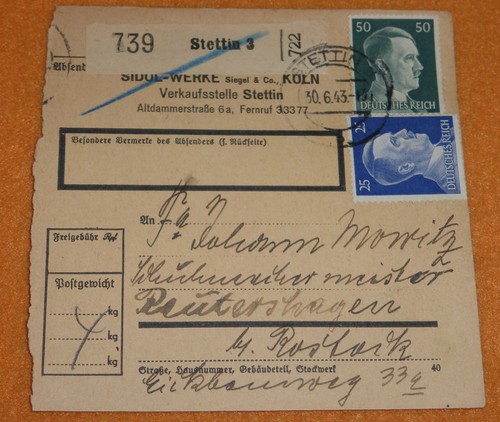 739 Stettin 3
722
Absend
SIDOL-WERKE Siegel & Co., KÖLN
Verkaufsstelle Stettin
Altdammerstraße 6a, Fernruf 33377
STETTIN
30.6.43
50 50
DEUTSCHES REICH
25 25
DEUTSCHES REICH
Besondere Vermerke des Absenders (s. Rückseite)
An
Johann Mowitz
Schuhmachermeister
Reutershagen
b. Rostock
Freigebühr
Postgewicht
kg
kg
kg
Straße, Hausnummer, Gebäudeteil, Stockwerk 40
33a